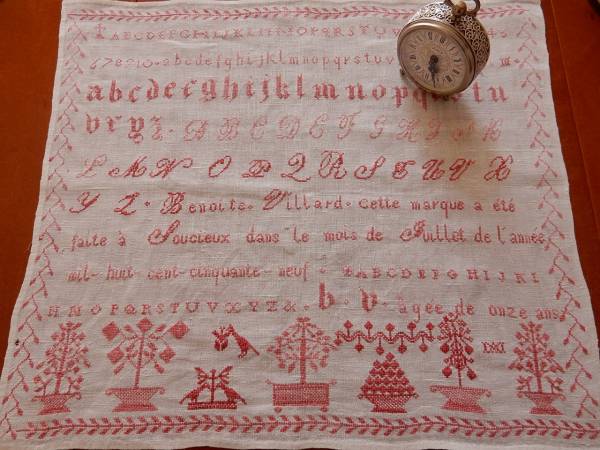 ABCDEFGHIJKLMNOPQRSTUV
67890 abcdefghijklmnopqrstuv
abcdefghijklmnopqrstu
vxyz. ABCDEFGHIJK
LMNOPQRSTUVX
YZ. Benoite. Villard. Cette marque a été
faite à Soucieux dans le mois de Juillet de l'année
mil-huit-cent-cinquante-neuf ABCDEFGHIJKL
MNOPQRSTUVXYZ&. b. v. agée de onze ans